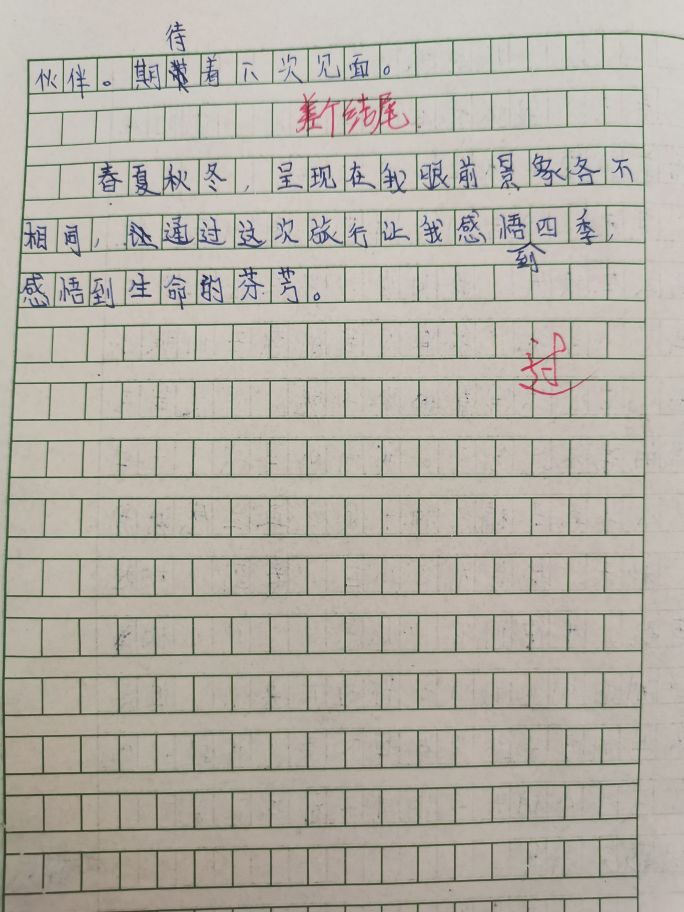 待
伙伴。期着下次见面。
差个结尾
春夏秋冬，呈现在我眼前景象各不
相同，通过这次旅行让我感悟到四季；
感悟到生命的芬芳。
过